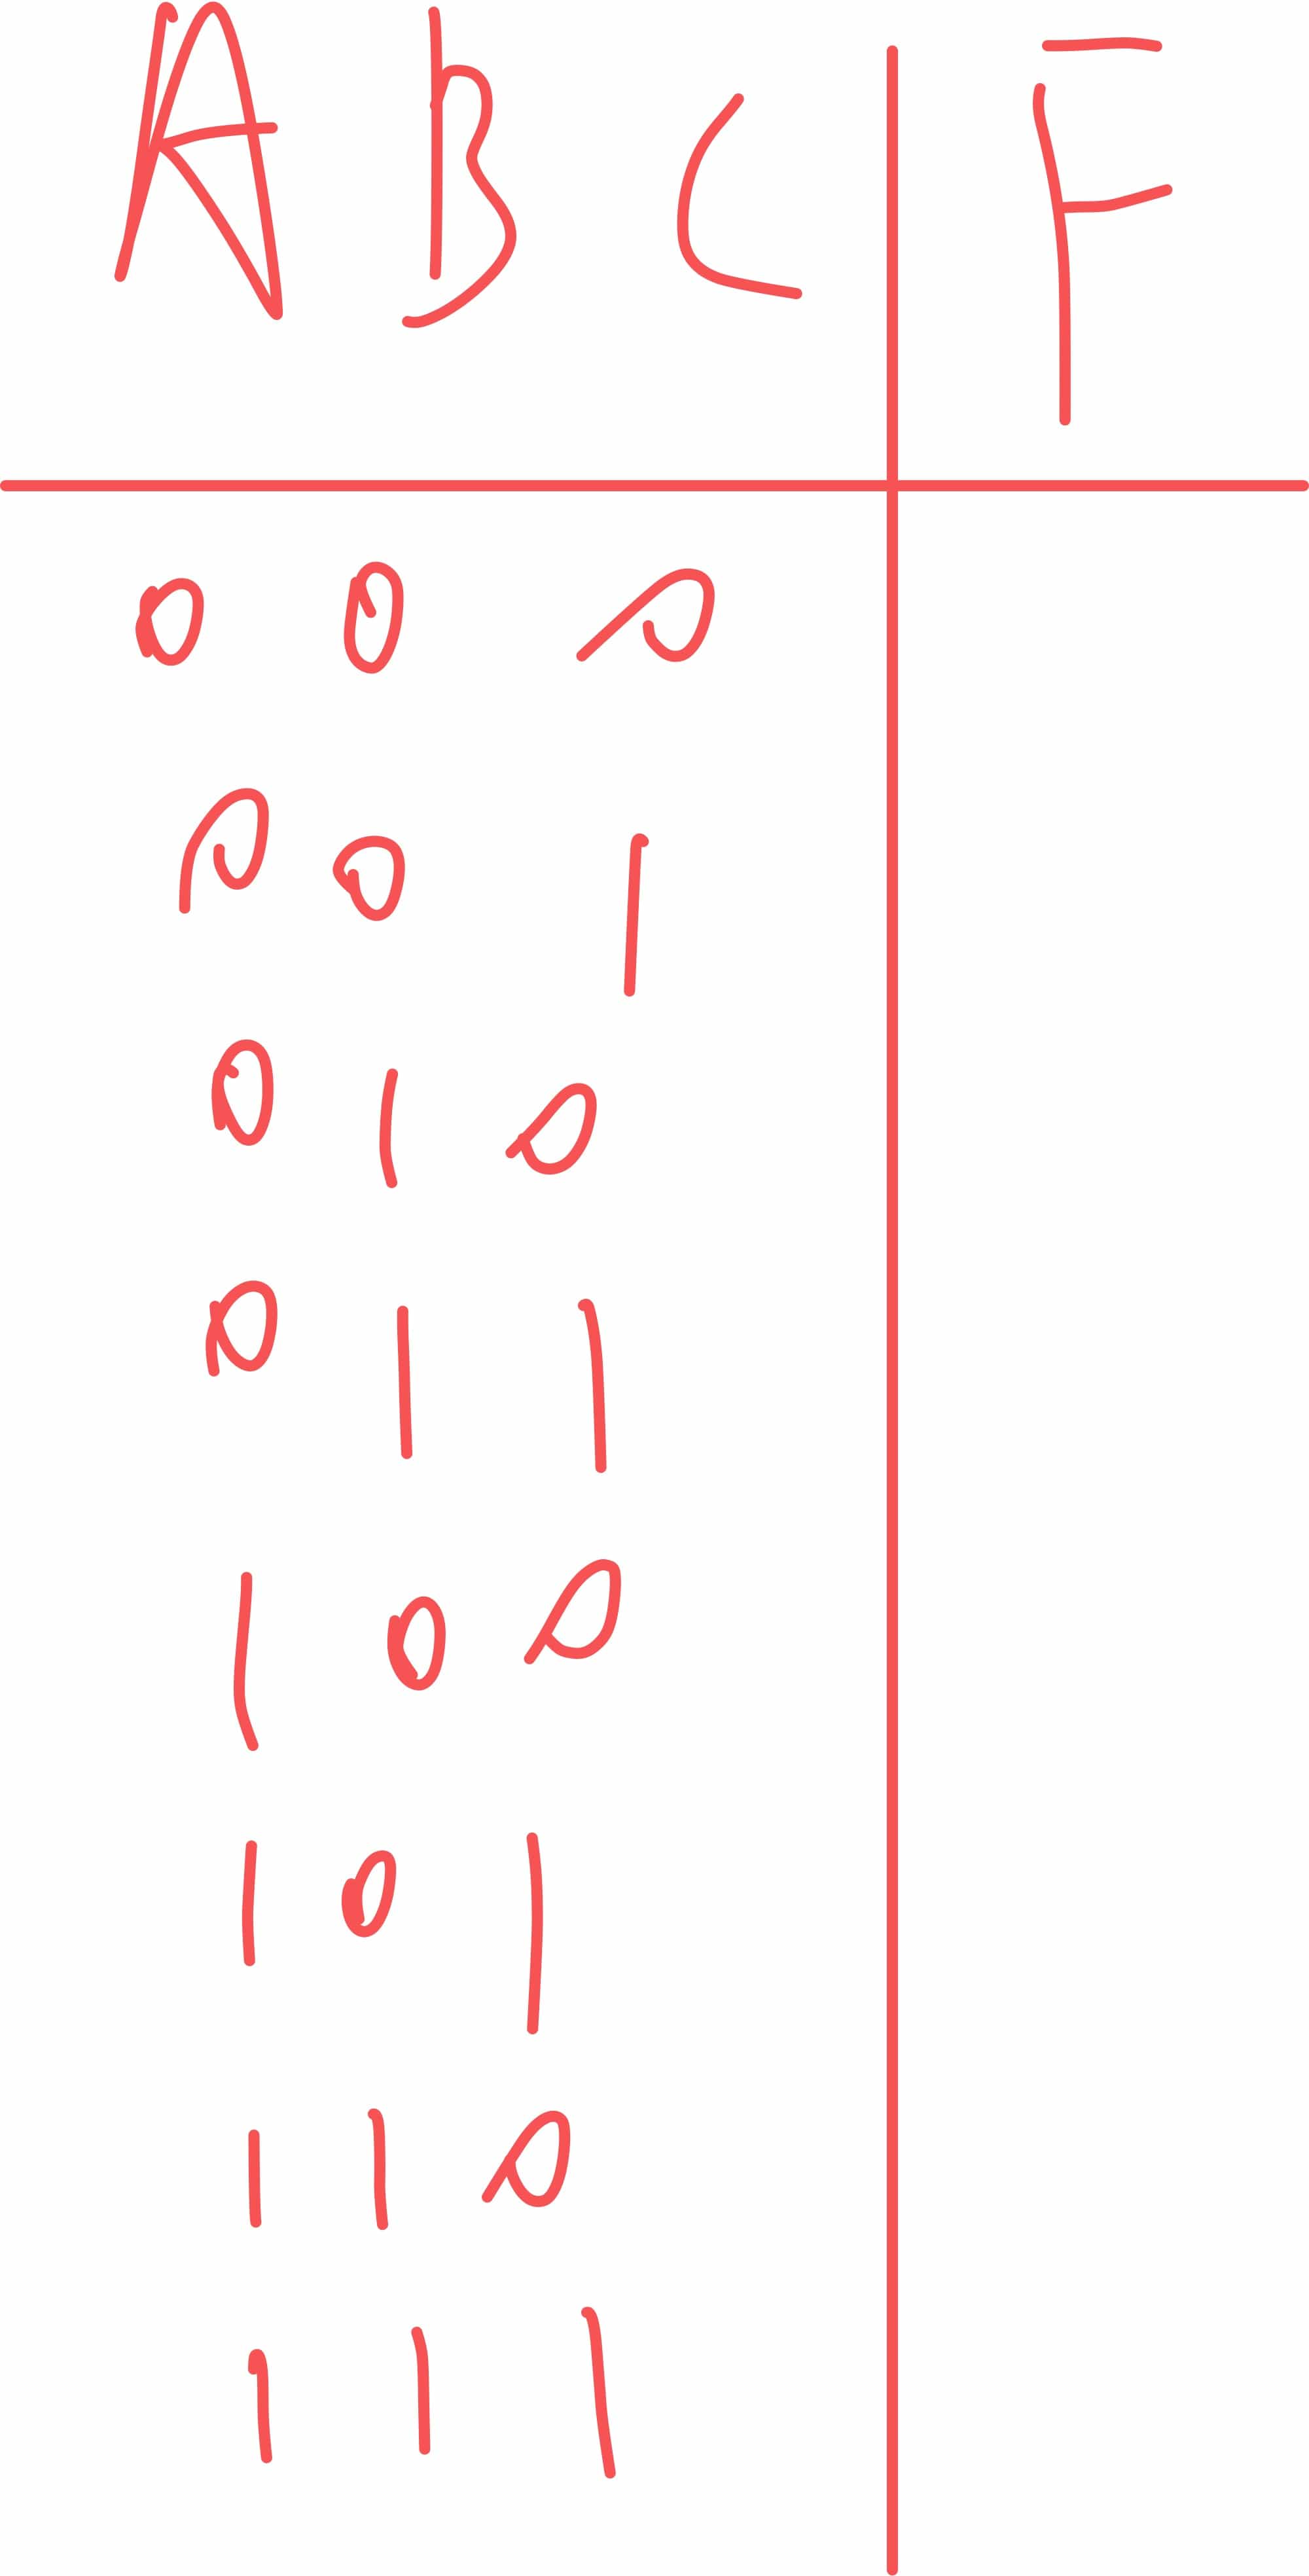 A B C F
0 0 0
0 0 1
0 1 0
0 1 1
1 0 0
1 0 1
1 1 0
1 1 1